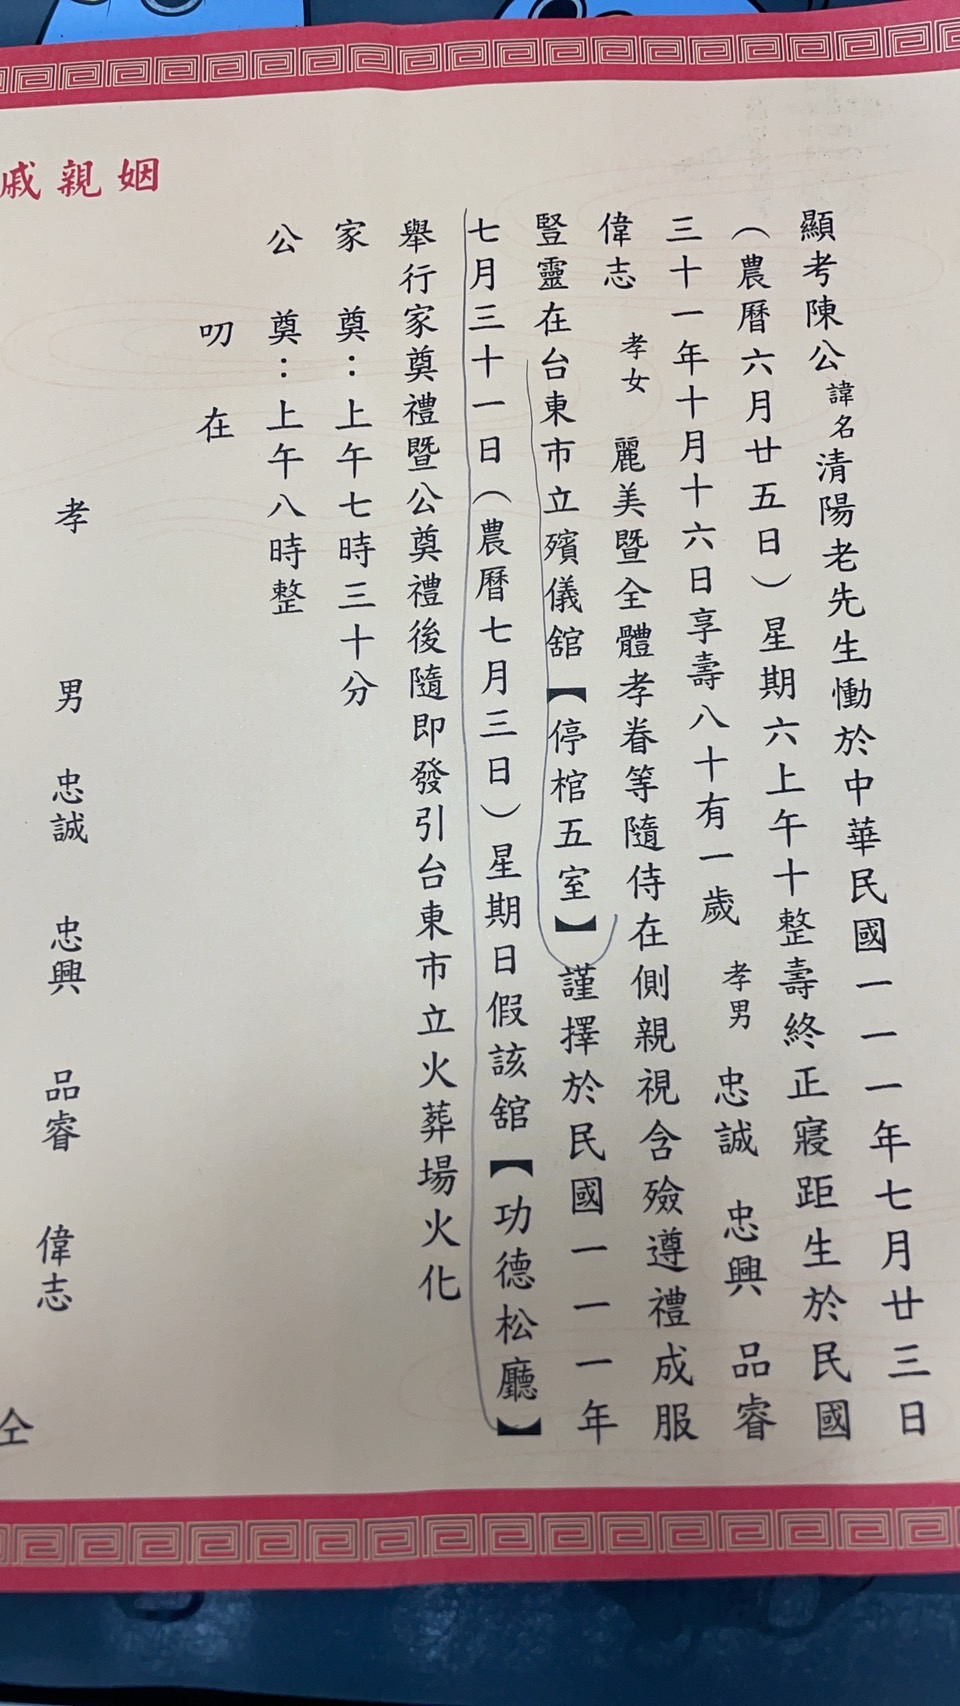 顯考陳公諱名清陽老先生慟於中華民國一一一年七月廿三日
（農曆六月廿五日）星期六上午十整壽終正寢距生於民國
三十一年十月十六日享壽八十有一歲 孝男 忠誠 忠興 品睿
偉志 孝女 麗美暨全體孝眷等隨侍在側親視含殮遵禮成服
豎靈在台東市立殯儀舘【停棺五室】謹擇於民國一一一年
七月三十一日（農曆七月三日）星期日假該舘【功德松廳】
舉行家奠禮暨公奠禮後隨即發引台東市立火葬場火化
家 奠：上午七時三十分
公 奠：上午八時整
叨 在
姻親戚
孝 男 忠誠 忠興 品睿 偉志
仝